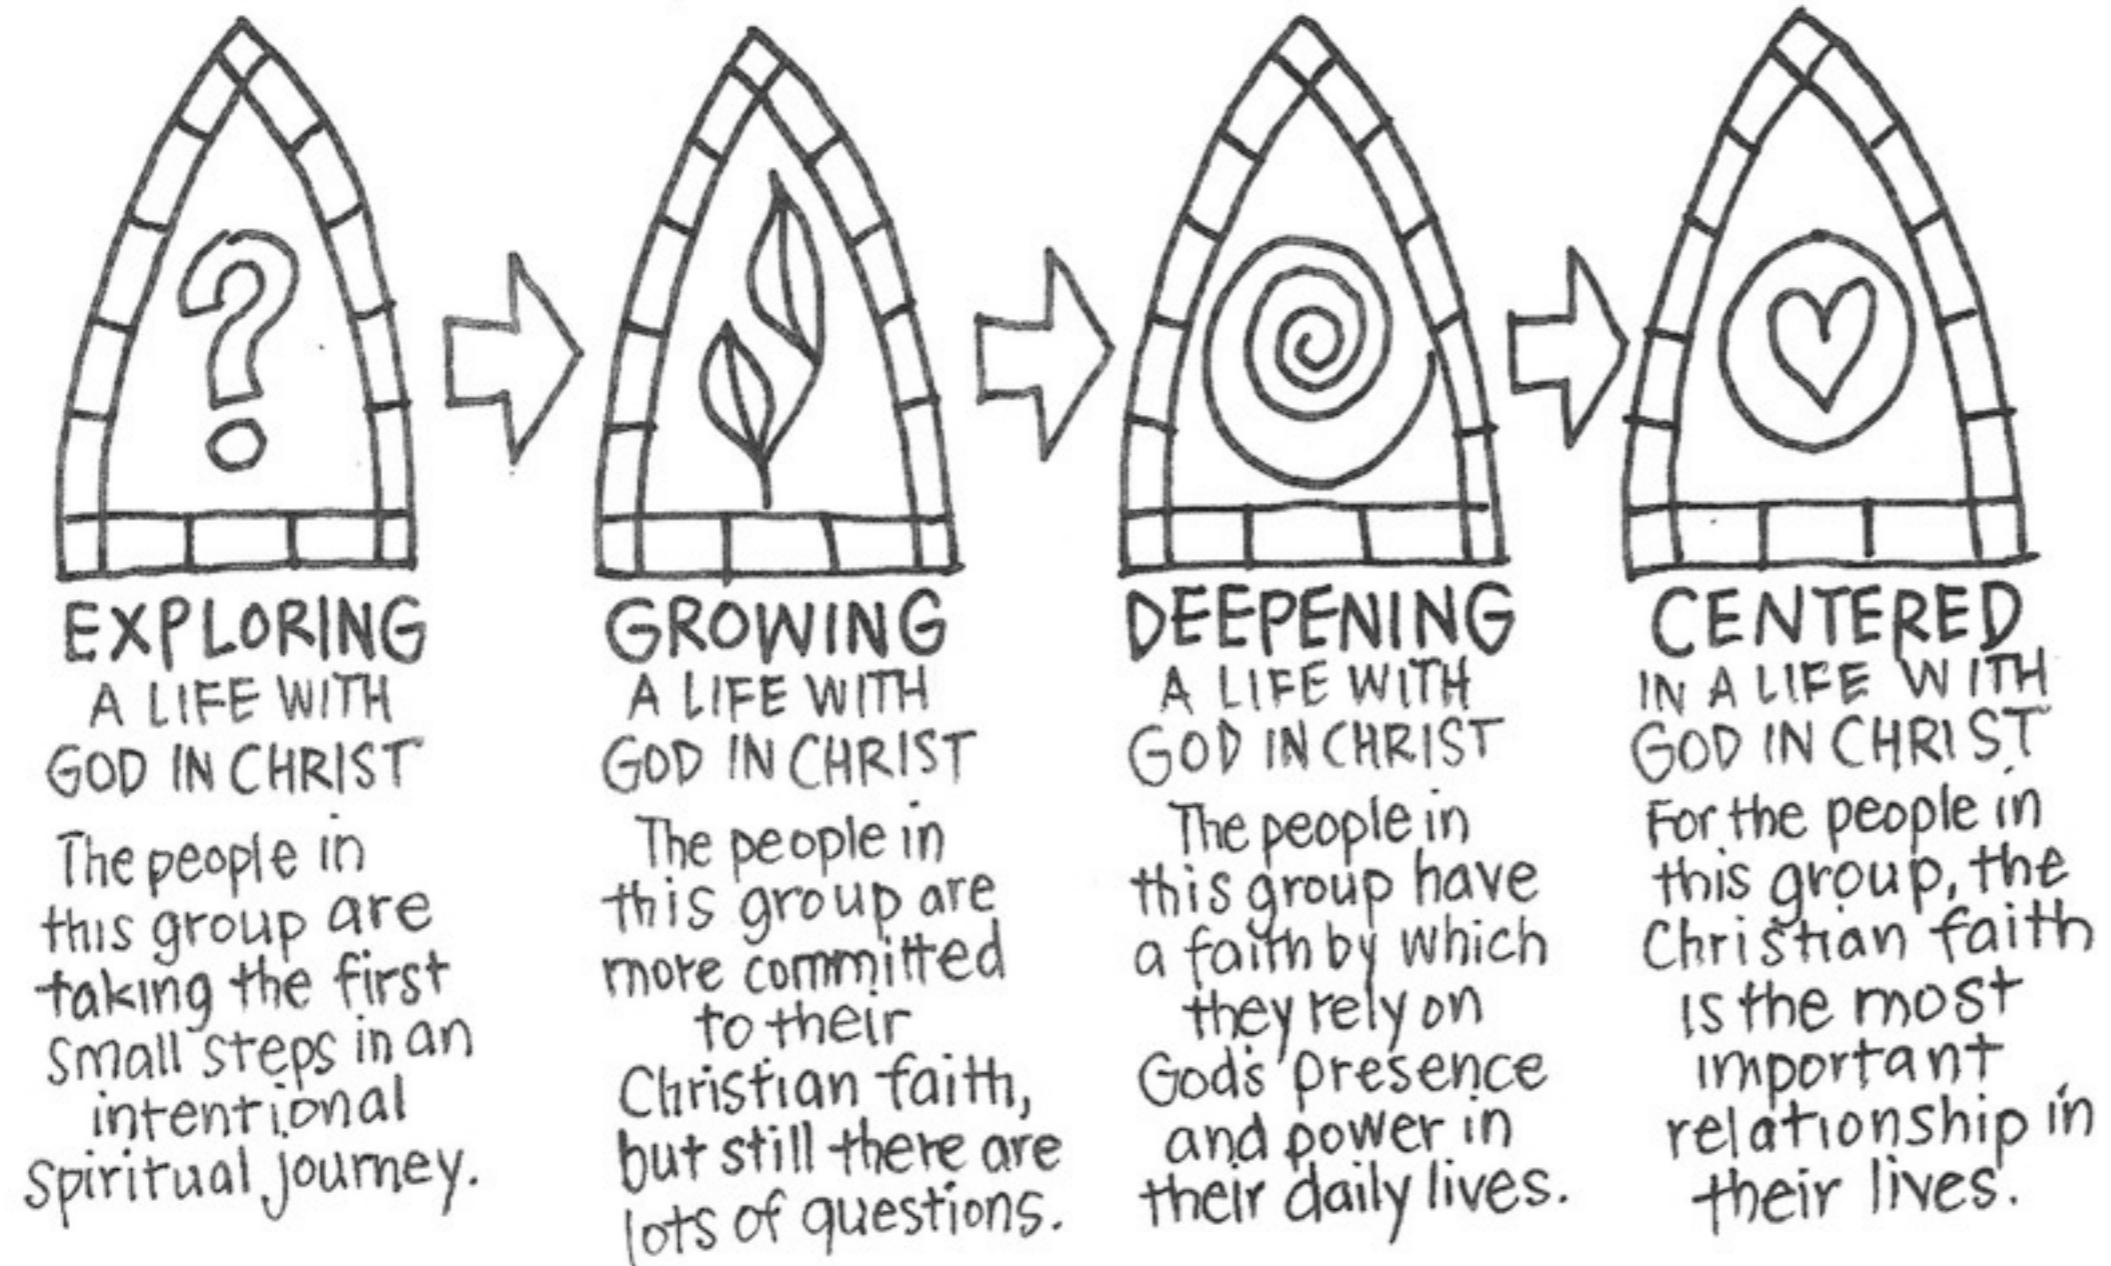 EXPLORING
A LIFE WITH
GOD IN CHRIST
The people in
this group are
taking the first
small steps in an
intentional
spiritual journey.
GROWING
A LIFE WITH
GOD IN CHRIST
The people in
this group are
more committed
to their
Christian faith,
but still there are
lots of questions.
DEEPENING
A LIFE WITH
GOD IN CHRIST
The people in
this group have
a faith by which
they rely on
God's presence
and power in
their daily lives.
CENTERED
IN A LIFE WITH
GOD IN CHRIST
For the people in
this group, the
Christian faith
is the most
important
relationship in
their lives.